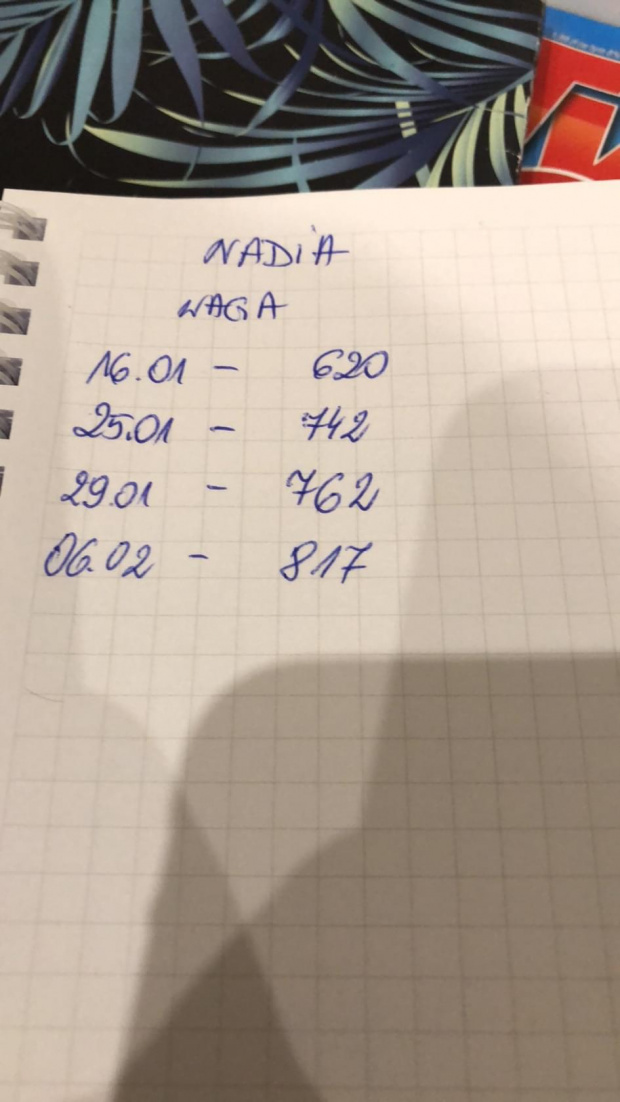 NADIA
WAGA
16.01 - 620
25.01 - 742
29.01 - 762
06.02 - 817